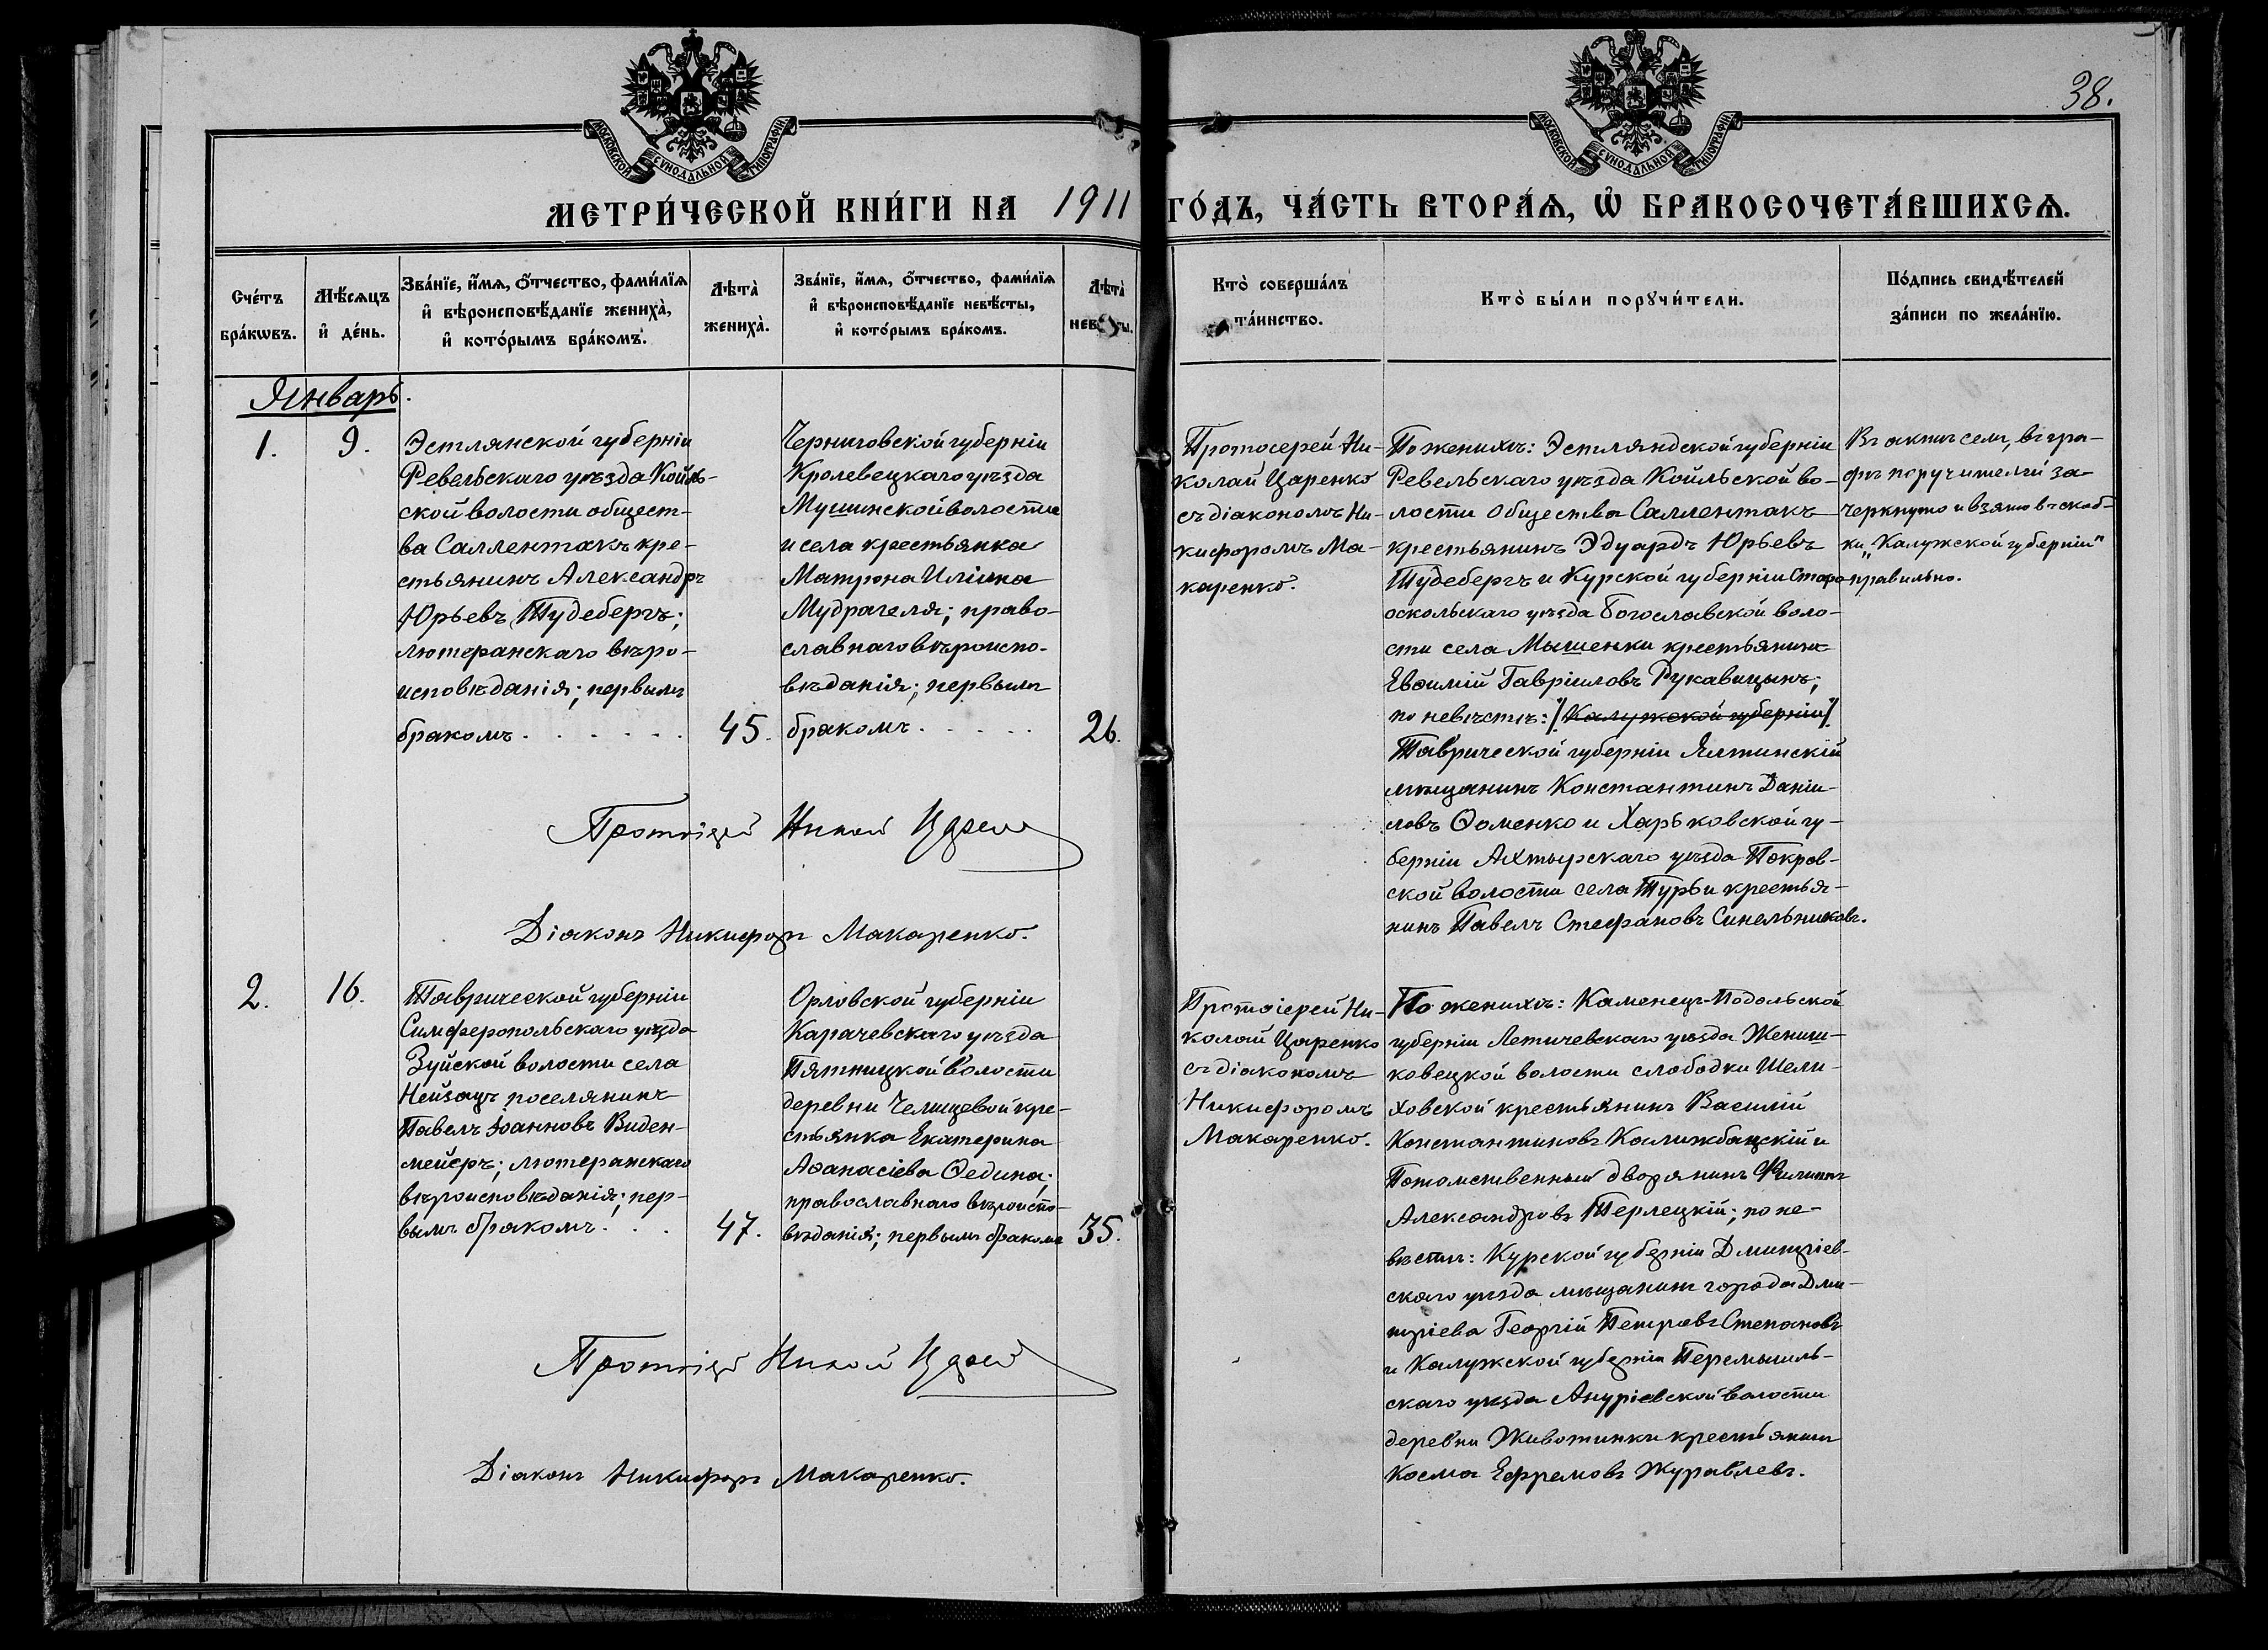 38.
МОСКОВСКОЙ СѴНОДАЛЬНОЙ ТИПОГРАФІИ
МОСКОВСКОЙ СѴНОДАЛЬНОЙ ТИПОГРАФІИ
МЕТРИ́ЧЕСКОЙ КНИ́ГИ НА 1911 ГО́ДЪ, ЧА́СТЬ ВТОРА́Ѧ, Ѽ БРАКОСОЧЕТА́ВШИХСѦ.
Сче́тъ
бра́кѡвъ.
Мѣ́сѧцъ
и҆ де́нь.
Зва́нїе, и҆́мѧ, о҆́тчество, фами́лїѧ
и҆ вѣроисповѣ́данїе жениха̀,
и҆ кото́рымъ бра́комъ.
Лѣта̀
жениха̀.
Зва́нїе, и҆́мѧ, о҆́тчество, фами́лїѧ
и҆ вѣроисповѣ́данїе невѣ́сты,
и҆ кото́рымъ бра́комъ.
Лѣта̀
невѣ́сты.
Кто̀ соверша́лъ
та́инство.
Кто̀ бы́ли порꙋчи́тели.
По́дпись свидѣ́телей
за́писи по жела́нїю.
Январь.
1.
9.
Эстлянской губерніи
Ревельскаго уѣзда Койль-
ской волости общест-
ва Саллентакъ кре-
стьянинъ Александръ
Юрьевъ Тудебергъ;
лютеранскаго вѣро-
исповѣданія; первымъ
бракомъ . . . . . .
45.
Черниговской губерніи
Кролевецкаго уѣзда
Мушинской волости
и села крестьянка
Матрона Иліина
Мудрагеля; право-
славнаго вѣроиспо-
вѣданія; первымъ
бракомъ . . . . .
26.
Протоерей Ни-
колай Царенко
съ діакономъ Ни-
кифоромъ Ма-
каренко.
По женихѣ: Эстляндской губерніи
Ревельскаго уѣзда Койльской во-
лости Общества Саллентакъ
крестьянинъ Эдуардъ Юрьевъ
Тудебергъ и Курской губерніи Старо-
оскольскаго уѣзда Богославской воло-
сти села Мышенки крестьянинъ
Евѳимій Гавріиловъ Рукавицынъ;
по невѣстѣ: /Калужской губерніи/
Таврической губерніи Ялтинскій
мѣщанинъ Константинъ Даніи-
ловъ Ѳоменко и Харьковской гу-
берніи Ахтырскаго уѣзда Покров-
ской волости села Турьи крестья-
нинъ Павелъ Стефановъ Синельниковъ.
Въ актѣ семъ, въ гра-
фѣ поручителей за-
черкнуто и взято въ скоб-
ки „Калужской губерніи"
правильно.
Протоіерей Николай Царенко
Діаконъ Никифоръ Макаренко.
2.
16.
Таврической губерніи
Симферопольскаго уѣзда
Зуйской волости села
Нейзацъ поселянинъ
Павелъ Іоанновъ Виден-
мейеръ; лютеранскаго
вѣроисповѣданія; пер-
вымъ бракомъ . . .
47.
Орловской губерніи
Карачевскаго уѣзда
Пятницкой волости
деревни Челищевой кре-
стьянка Екатерина
Аѳанасіева Ѳедина;
православнаго вѣроиспо-
вѣданія; первымъ бракомъ
35.
Протоіерей Ни-
колай Царенко
съ діакономъ
Никифоромъ
Макаренко.
По женихѣ: Каменецъ-Подольской
губерніи Летичевскаго уѣзда Жениш-
ковецкой волости слободки Шели-
ховской крестьянинъ Василій
Константиновъ и
Потомственный дворянинъ Филиппъ
Александровъ Терлецкій; по не-
вѣстѣ: Курской губерніи Дмитріев-
скаго уѣзда мѣщанинъ города Дми-
тріева Георгій Петровъ Степановъ
и Калужской губерніи Перемышль-
скаго уѣзда волости
деревни Животинки крестьянинъ
Косма Ефремовъ Журавлевъ.
Протоіерей Николай Царенко
Діаконъ Никифоръ Макаренко.